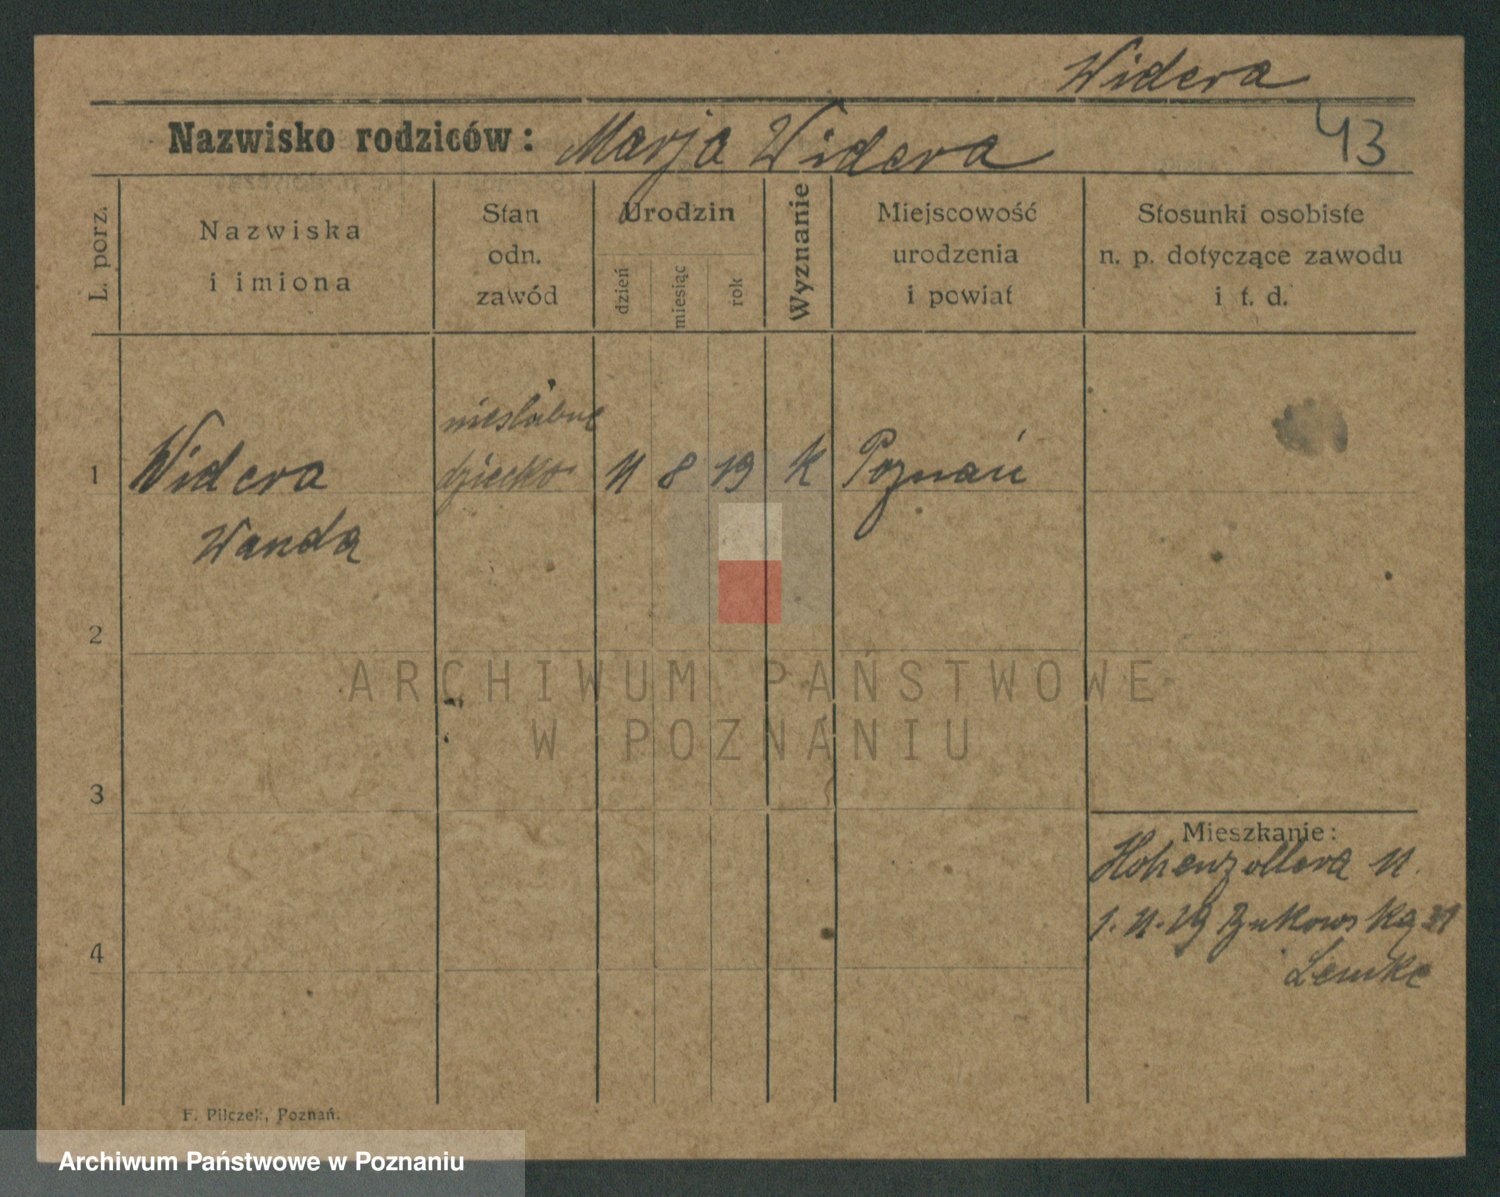 Widera
Nazwisko rodziców: Marja Widera
43
L. porz.
Nazwiska
i imiona
Stan
odn.
zawód
Urodzin
dzień
miesiąc
rok
Wyznanie
Miejscowość
urodzenia
i powiat
Stosunki osobiste
n. p. dotyczące zawodu
i t. d.
nieślubne
1 Widera dziecko 11 8 19 k Poznań
Wanda
2
ARCHIWUM PAŃSTWOWE
W POZNANIU
3
Mieszkanie:
Hohenzollera 11.
4 1. 11. 19 Bukowska 31
Lemke
F. Pilczek, Poznań.
Archiwum Państwowe w Poznaniu